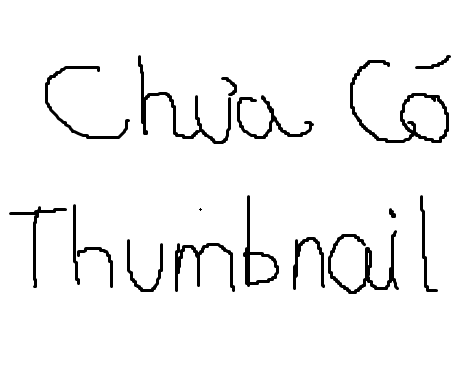 Chưa Có
Thumbnail